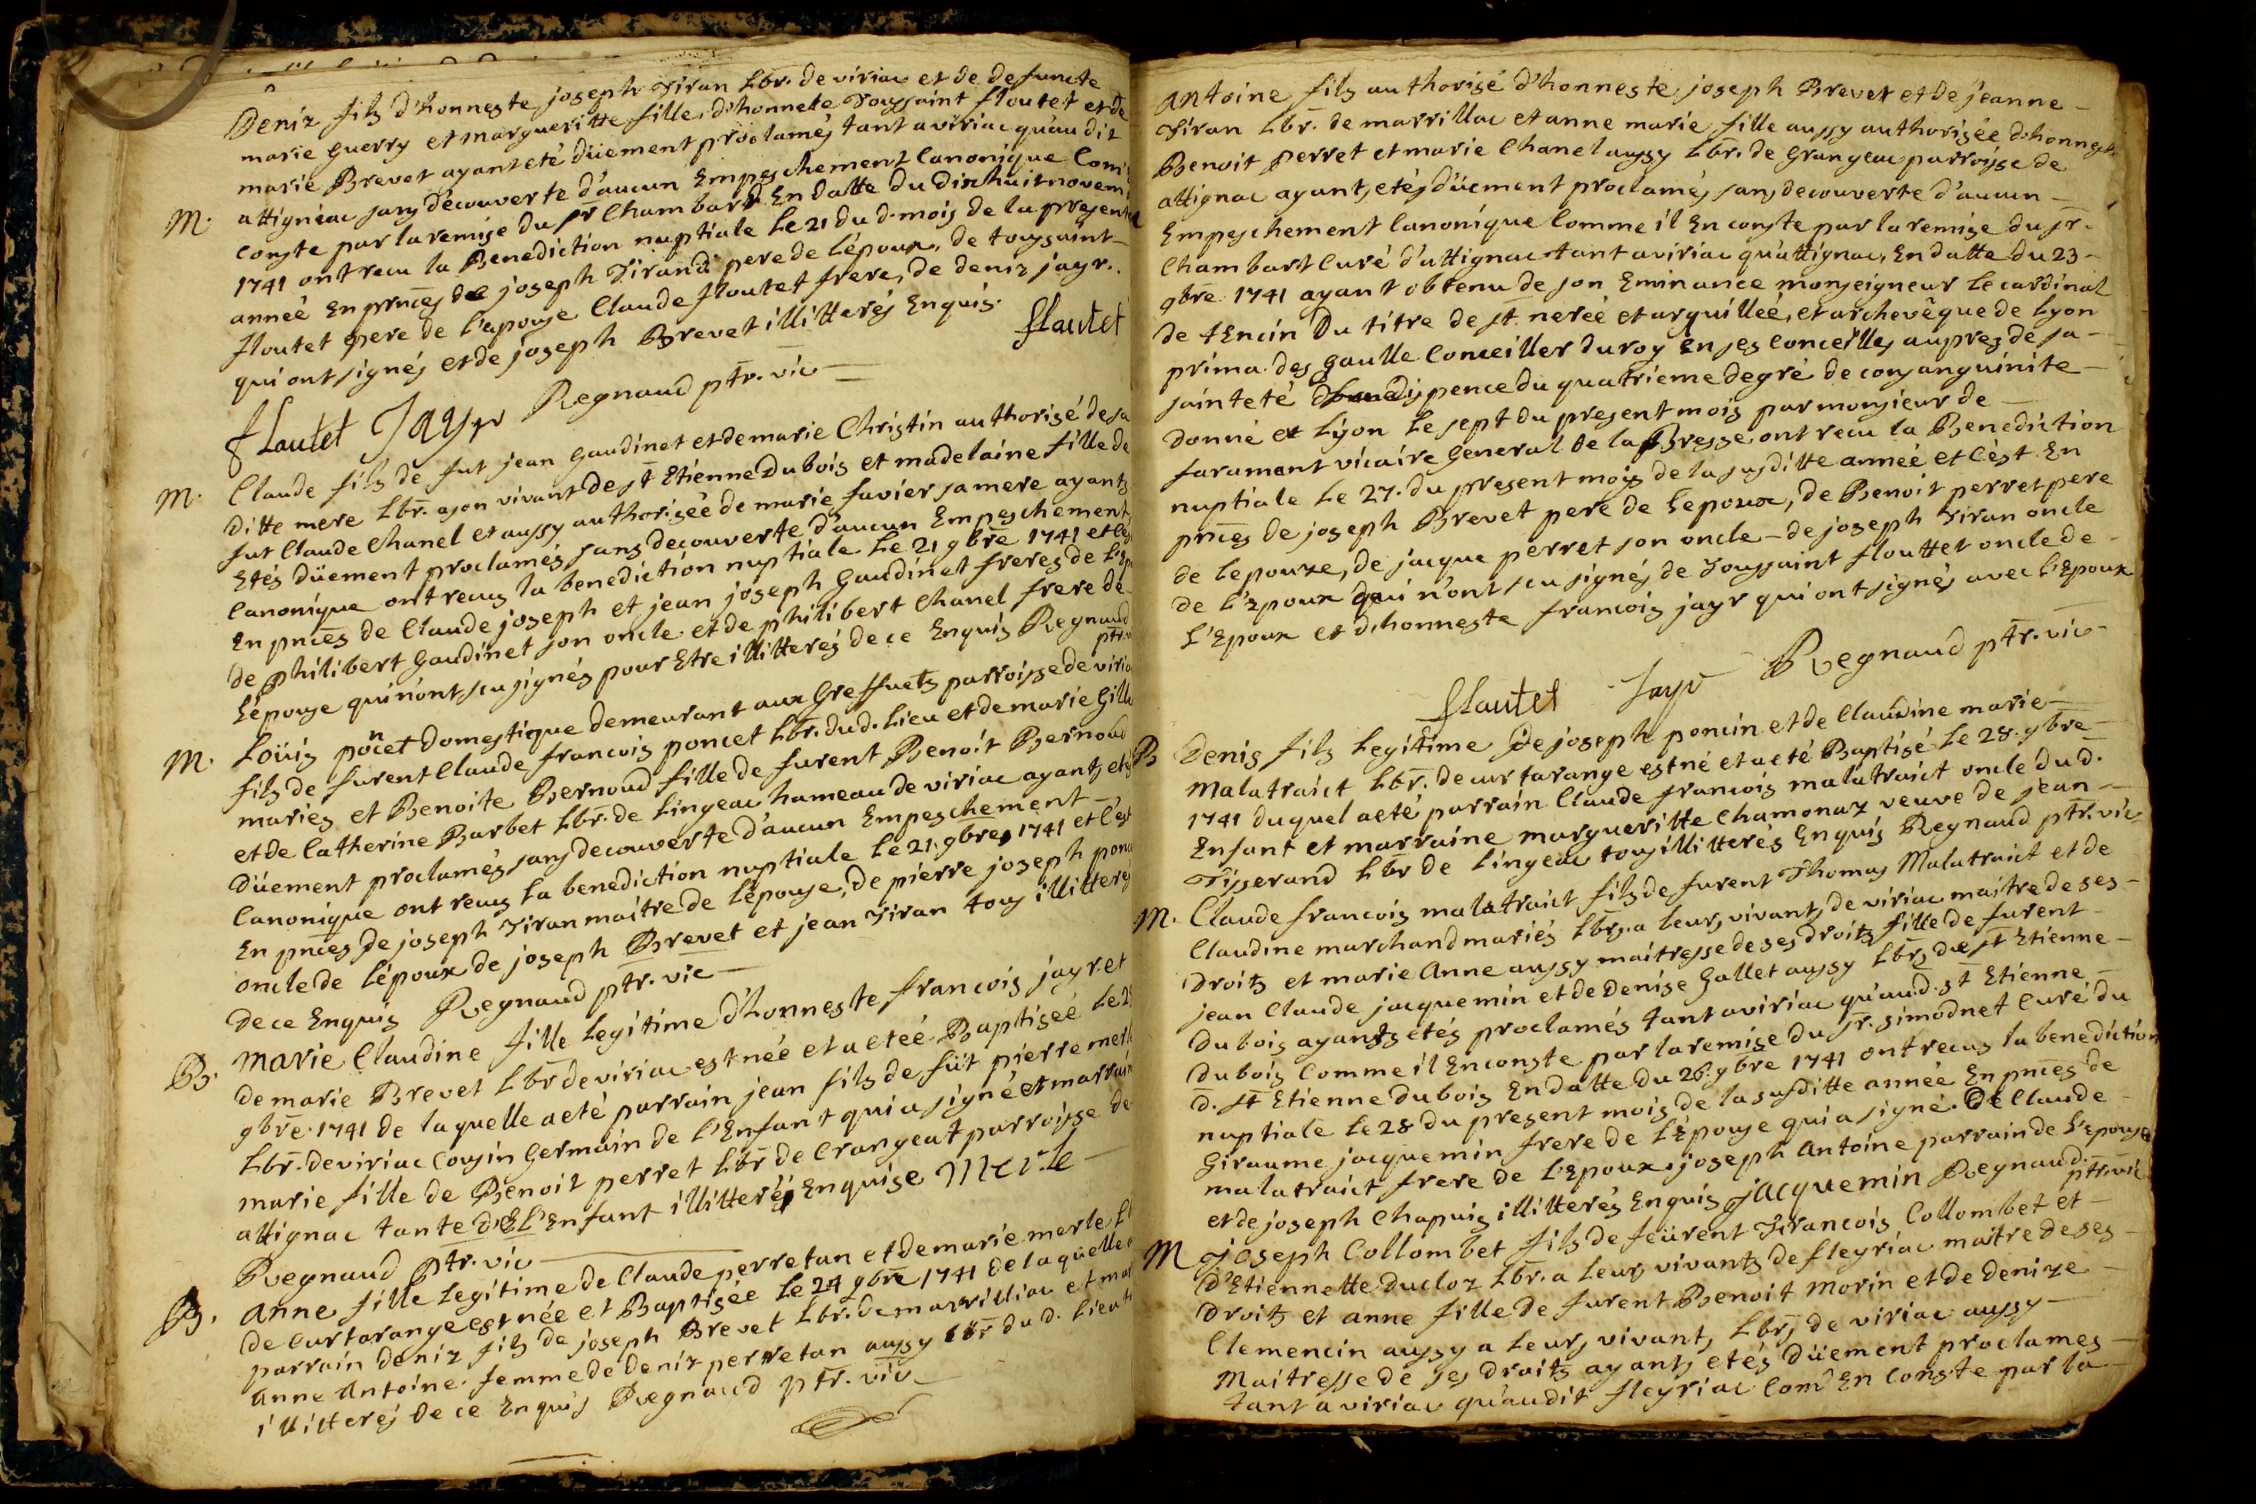 Deniz fils d'honneste joseph Tiran Lbr. de viriac et de defuncte
marie Guerry et margueritte fille d'honnete Toussaint floutet et de
marie Brevet ayant eté düement proclamés tant a viriac qu'au dit
M. attignéac sans découverte d'aucun Empeschement Canonique Com̃
Conste par la remise du sr Chambart En datte du dixhuit novem
1741 ont recu la Benediction nuptiale Le 21 du d. mois de la present
anneé En pnces de joseph Tirand pere de L'époux, de toussaint
floutet pere de l'epouse Claude floutet frere, de deniz jayr.
qui ont signés et de joseph Brevet illitterés Enquis. flautet
flautet Jayr Regnaud ptr. vic
M. Claude fils de fut jean Gaudinet et de marie Christin authorisé de sa
ditte mere Lbr. a son vivant de st Etienne Dubois et madelaine fille de
fut Claude Chanel et aussy authorisée de marie favier sa mere ayants
Etés düement proclamés sans decouverte d'aucun Empeschement
Canonique ont recus la benediction nuptiale Le 21 gbre 1741 et c'es
En pnces de Claude joseph et jean joseph Gaudinet freres de L'ep
de philibert Gaudinet son oncle et de philibert Chanel frere de
L'épouse qui n'ont scu signés pour Etre illitterés de ce Enquis Regnaud
ptr. v
M. Loüis poncet Domestique demeurant aux Greffuets parroisse de viria
fils de furent Claude francois poncet Lbr. dud. Lieu et de marie Gill
mariés et Benoite Bernoud fille de furent Benoit Bernoud
et de Catherine Barbet Lbr. de Lingeac hameau de viriac ayants etés
Düement proclamés sans decouverte d'aucun Empeschement
Canonique ont recus la benediction nuptiale Le 21. gbre 1741 et c'est
En pnces de joseph Tiran maitre de L'épouse, de pierre joseph ponc
oncle de L'époux de joseph Brevet et jean Tiran tous illitterés
de ce Enquis Regnaud ptr. vic
B. Marie Claudine fille Legitime D'honneste francois jayr et
de marie Brevet Lbr de viriac est née et a eteé Baptiseé Le 2
gbre. 1741 de laquelle a eté parrain jean fils de füt pierre merl
Lbr. de viriac Cousin Germain de L'Enfant qui a signé et marrain
marie fille de Benoit perret Lbr de Crangeat parroisse de
attignac tante de L'Enfant illitterés Enquise Merle
Regnaud ptr. vic
B. Anne fille Legitime de Claude perretan et de marie merle L
de Curtarange est née et Baptisée Le 24 gbre 1741 de laquelle
parrain deniz fils de joseph Brevet Lbr. de marrilliac et mar
anne Antoine. femme de deniz perretan aussy Lbr du d. Lieu
illitterés de ce Enquis Regnaud ptr. vic
Antoine fils authorisé d'honneste joseph Brevet et de jeanne
Tiran Lbr. de marrillac et anne marie fille aussy authorisée d'honneste
Benoit perret et marie Chanel aussy Lbr. de Grangeac parroisse de
attignac ayants etés düement proclamés sans decouverte d'aucun
Empeschement Canonique Comme il En conste par la remise du sr.
Chambart Curé d'attignac tant a viriac qu'attignac, En datte du 23
gbre 1741 ayant obtenu de son Eminance monseigneur Le cardinal
de tEncin Du titre de st. nereé et arquilleé, et archevêque de Lyon
prima. des Gaulle Conceiller du roy En ses Conceilles aupres de sa
sainteté dispence du quatrieme degré de consanguinite
Donné et Lyon Le sept du present mois par monsieur de
faramant vicaire General de la Bresse ont recu la Benediction
nuptiale Le 27. du present mois de la susditte anneé et c'est En
pnces de joseph Brevet pere de Lepoux, de Benoit perret pere
de Lepouxe, de jacque perret son oncle de joseph Tiran oncle
de L'Epoux qui n'ont scu signés de Toussaint flouttet oncle de
L'Epoux et d'honneste francois jayr qui ont signés avec L'Epoux
flautet Jayr Regnaud ptr. vic
B Denis fils Legitime de joseph poncin et de Claudine marie
Malatraict Lbr. de curtarange est né et a eté Baptisé Le 28. gbre
1741 duquel a eté parrain Claude francois malatraict oncle du d.
Enfant et marraine margueritte Chamonaz veuve de jean
Tisserand Lbr de Lingeac tous illitterés Enquis Regnaud ptr. vic
M. Claude francois malatraict fils de furent Thomas Malatraict et de
Claudine marchand mariés Lbrs. a leurs vivants de viriac maitre de ses
Droits et marie Anne aussy maitresse de ses droits fille de furent
jean Claude jacquemin et de Denise Gallet aussy Lbrs de st Etienne
Dubois ayants etés proclamés tant a viriac qu'au d. st Etienne
Dubois Comme il En conste par la remise du sr. simodnet Curé du
d. st Etienne dubois En datte du 26. gbre 1741 ont recus la benediction
nuptiale Le 28 du present mois de la susditte année En pnces de
Giraume jacquemin frere de L'épouse qui a signé. De Claude
malatraict frere de L'Epoux. joseph Antoine parrain de L'epouse
et de joseph Chapuis illitterés Enquis jacquemin Regnaud
ptr. vic
M joseph Collombet fils de feürent francois Collombet et
D'Etiennette ducloz Lbr. a Leurs vivants de fleyriac maitre de ses
Droits et anne fille de furent Benoit Morin et de denize
Clemencin aussy a Leurs vivants Lbrs de viriac aussy
Maitresse de ses droits ayants etés düement proclames
tant a viriac qu'au dit fleyriac Com̃ En Conste par la